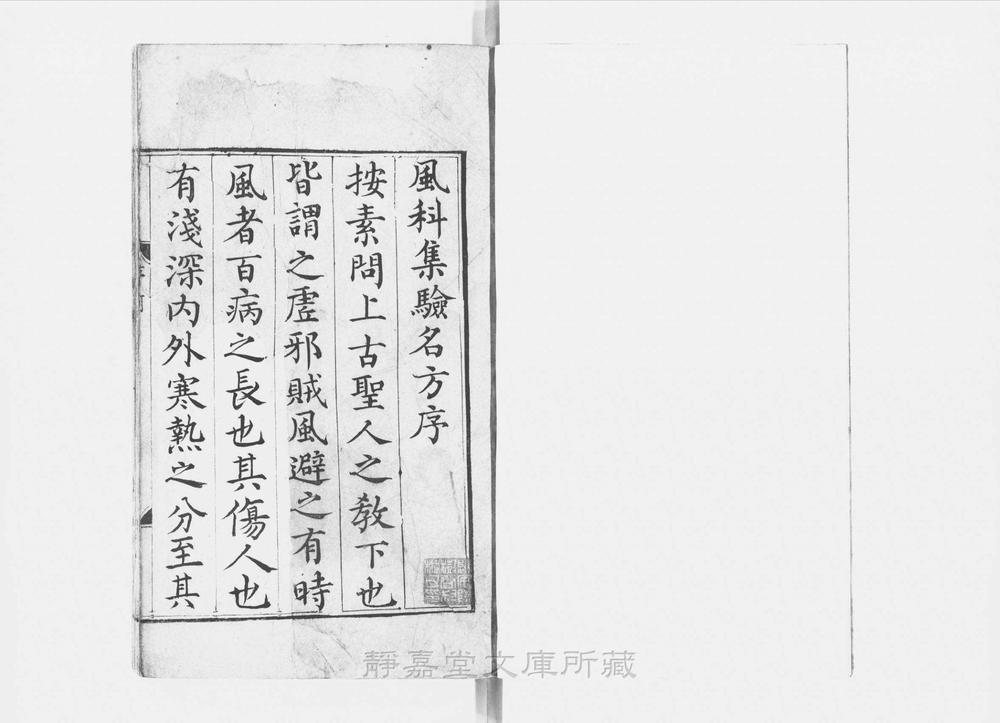 風科集驗名方序
按素問上古聖人之教下也
皆謂之虛邪賊風避之有時
風者百病之長也其傷人也
有淺深内外寒熱之分至其
靜嘉堂文庫所藏